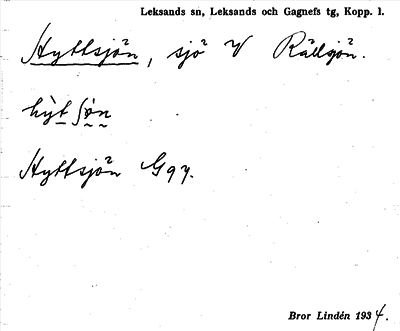 Leksands sn, Leksands och Gagnefs tg, Kopp. l.
Hyttsjön, sjö V Rällsjön.
Hyttsjön Gqy.
Bror Lindén 1934.